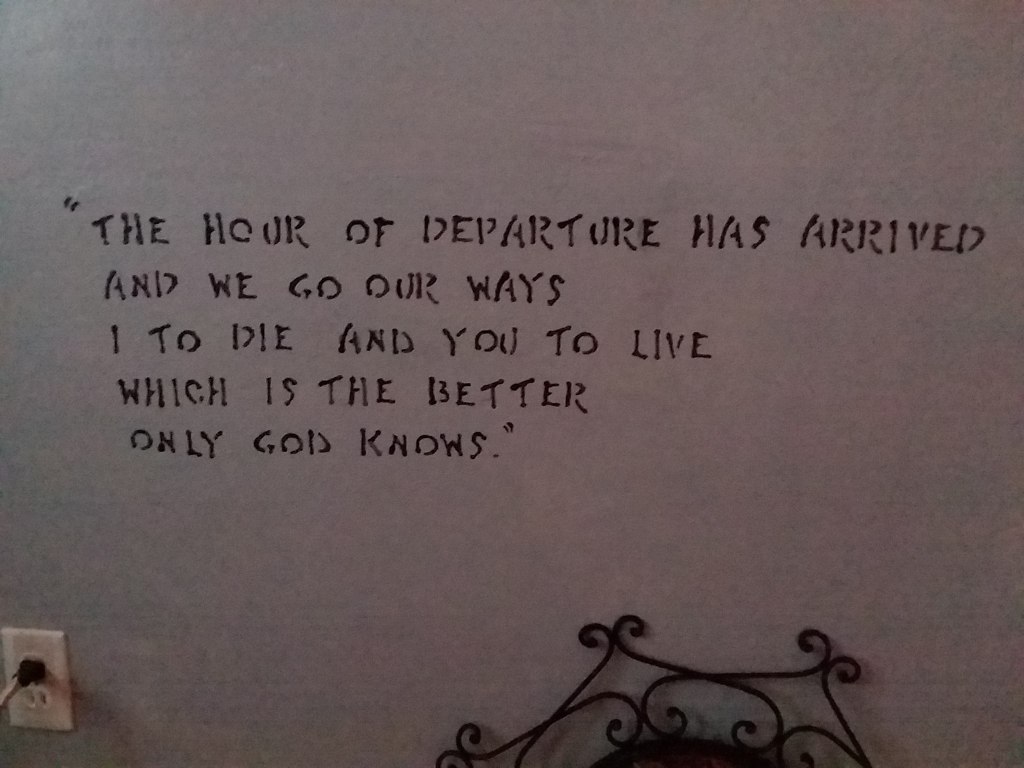 "THE HOUR OF DEPARTURE HAS ARRIVED
AND WE GO OUR WAYS
I TO DIE AND YOU TO LIVE
WHICH IS THE BETTER
ONLY GOD KNOWS."